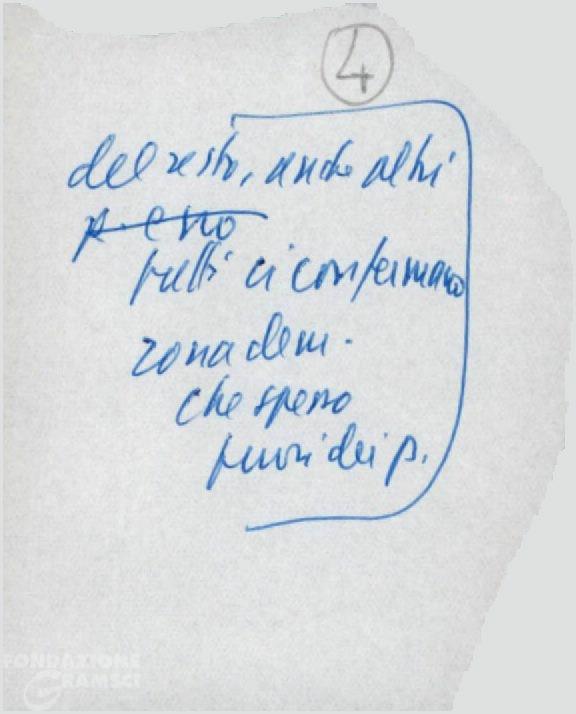 4
del resto, anche altri
p. e no
fatti ci confermano
zona dem.
che spesso
fuori dei p.
FONDAZIONE
GRAMSCI